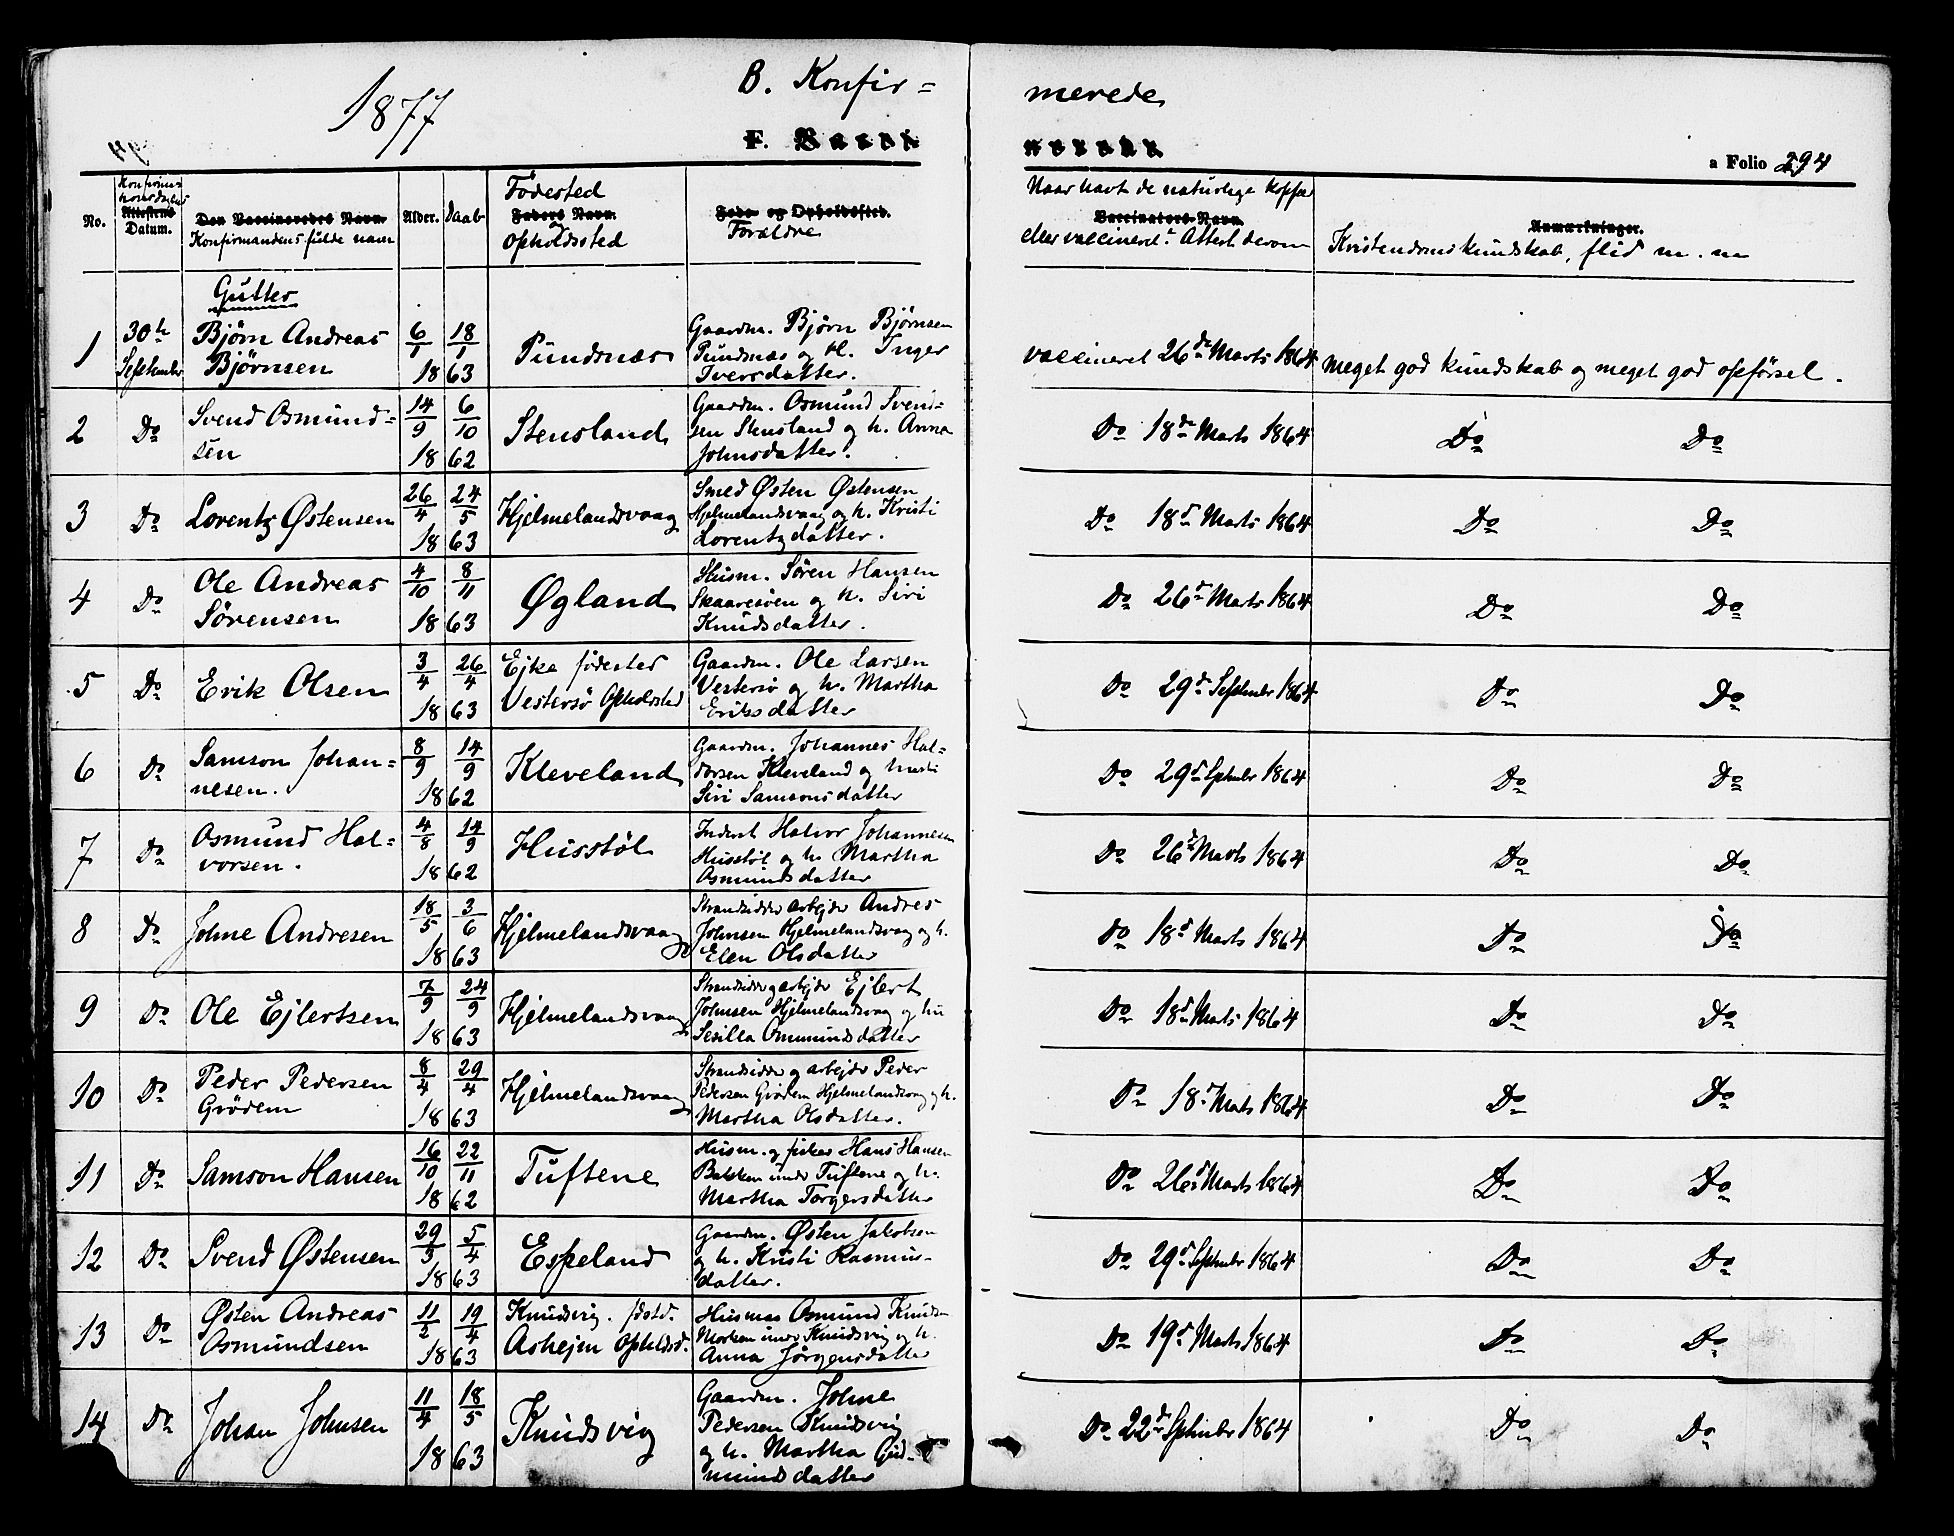 1877
B. Konfir=
merede
F.
a Folio 294
No.
Datum.
Den Vaccineredes Navn.
Konfirmandens fulde navn
Alder.
Daab
Födested
Faders Navn.
og
Opholdssted
Føde- og Opholdssted.
Foraldre
Naar havt de naturlige kopper
Vaccinators Navn
eller vaccineret? Attest derom
Anmærkninger.
Kristendomskundskab, flid m. m
Gutter
1 30te September Bjørn Andreas Bjørnsen 6/1 18/1 1863 Pundsnæs Gaardm. Bjørn Bjørnsen Pundsnæs og H. Inger Iversdatter. vaccineret 26de Marts 1864 meget god kundskab og meget god opförsel.
2 Do Svend Osmund=sen 14/9 6/10 1862 Stensland Gaardm. Osmund Svend=sen Stensland og h. Anna Johnsdatter. Do 18de Marts 1864 Do Do
3 Do Lorentz Østensen 26/4 24/5 1863 Hjelmelandsvaag Smed Østen Østensen Hjelmelandsvaag og h. Kristi Lorentzdatter. Do 18d Marts 1864 Do Do
4 Do Ole Andreas Sörensen 4/10 8/11 1863 Øgland Husm. Sören Hansen Skaaresöen og h. Siri Knudsdatter. Do 26d Marts 1864 Do Do
5 Do Erik Olsen 3/4 26/4 1863 Ejke födested Vestersö Opholdsted Gaardm. Ole Larsen Vestersö og h. Martha Eriksdatter Do 29d September 1864 Do Do
6 Do Samson Johan=nesen. 8/9 14/9 1862 Kleveland Gaardm. Johannes Hal=dorsen Kleveland og hustr Siri Samsonsdatter Do 29d Septmbr 1864 Do Do
7 Do Osmund Hal=vorsen. 4/8 14/9 1862 Husstöl Inderst Halvor Johannesen Husstöl og h. Martha Osmundsdatter Do 26d Marts 1864 Do Do
8 Do Johne Andresen 18/5 3/6 1863 Hjelmelandsvaag Strandsidder arbejder Andres Johnsen Hjelmelandsvag og h. Elen Olsdatter Do 18d Marts 1864 Do Do
9 Do Ole Ejlertsen 7/9 24/9 1863 Hjelmelandsvaag Strandsidder og arbejder Ejlert Johnsen Hjelmelandsvag og hu Sesilla Ommundsdatter Do 18d Marts 1864 Do Do
10 Do Peder Pedersen Grödem 8/4 29/4 1863 Hjelmelandsvaag Strandsidder og arbejder Peder Pedersen Grödem Hjelmelandsvag og h. Martha Olsdatter. Do 18d Marts 1864 Do Do
11 Do Samson Hansen 16/10 22/11 1862 Tuftene Husm. og fisker Hans Hansen under Tuftene og h. Martha Torgersdatter Do 26d Marts 1864 Do Do
12 Do Svend Østensen 29/3 5/4 1863 Espeland Gaardm. Østen Jakobsen og h. Kristi Rasmus-datter. Do 29d September 1864 Do Do
13 Do Østen Andreas Osmundsen 11/2 19/4 1863 Knudsvig. fdstd. Ashejm Opholdsd. Husmas Osmund Knudsen under Knudsvig og h. Anna Jörgensdatter Do 19d Marts 1864 Do Do
14 Do Johan Johnsen 11/4 18/5 1863 Knudsvig Gaardm. Johne Pedersen Knudsvig og h. Martha Gud=mundsdatter Do 22d Septmbr 1864 Do Do